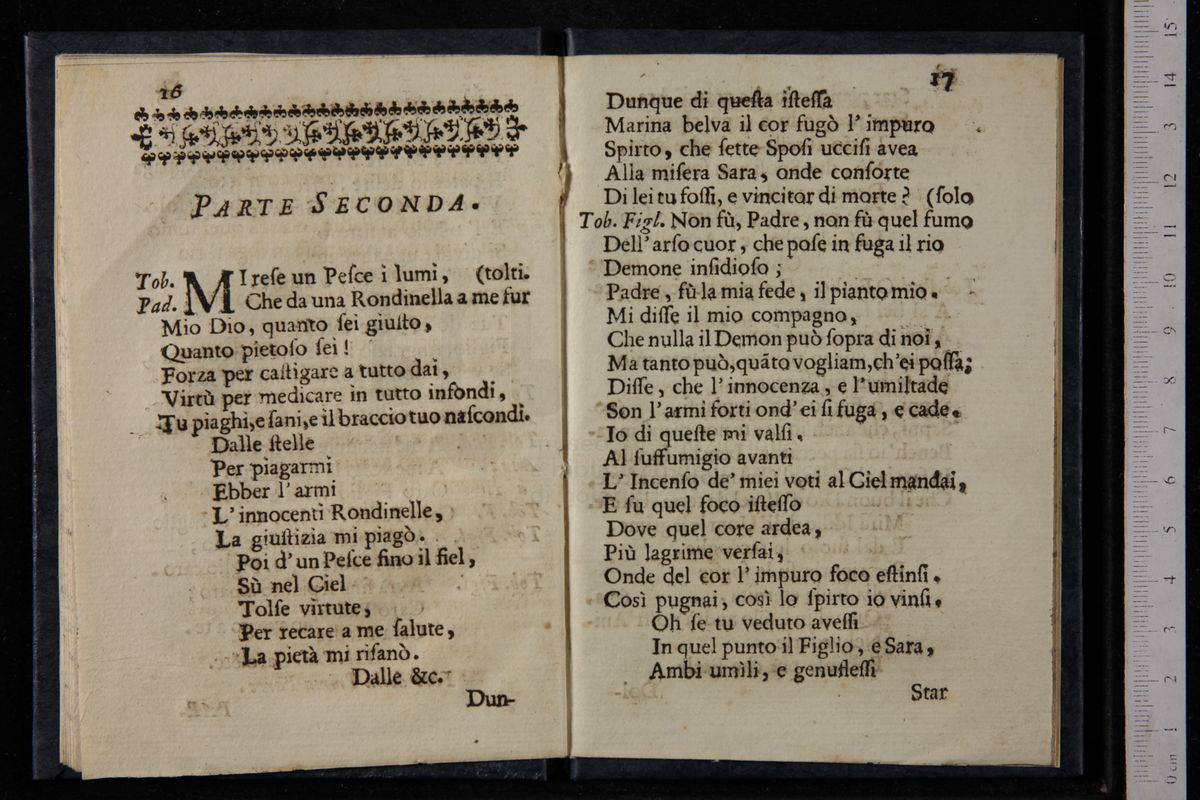 16
PARTE SECONDA.
Tob. Pad. MI reſe un Peſce i lumi, (tolti.
Che da una Rondinella a me fur
Mio Dio, quanto ſei giuſto,
Quanto pietoſo ſei!
Forza per caſtigare a tutto dai,
Virtù per medicare in tutto infondi,
Tu piaghi, e ſani, e il braccio tuo naſcondi.
Dalle ſtelle
Per piagarmi
Ebber l'armi
L'innocenti Rondinelle,
La giuſtizia mi piagò.
Poi d'un Peſce fino il fiel,
Sù nel Ciel
Tolſe virtute,
Per recare a me ſalute,
La pietà mi riſanò.
Dalle &c.
Dun-
17
Dunque di queſta iſteſſa
Marina belva il cor fugò l'impuro
Spirto, che ſette Spoſi ucciſi avea
Alla miſera Sara, onde conſorte
Di lei tu foſſi, e vincitor di morte? (ſolo
Tob. Figl. Non fù, Padre, non fù quel fumo
Dell'arſo cuor, che poſe in fuga il rio
Demone inſidioſo;
Padre, fù la mia fede, il pianto mio.
Mi diſſe il mio compagno,
Che nulla il Demon può ſopra di noi,
Ma tanto può, quãto vogliam, ch'ei poſſa;
Diſſe, che l'innocenza, e l'umiltade
Son l'armi forti ond'ei ſi fuga, e cade.
Io di queſte mi valſi.
Al ſuffumigio avanti
L'Incenſo de' miei voti al Ciel mandai,
E ſu quel foco iſteſſo
Dove quel core ardea,
Più lagrime verſai,
Onde del cor l'impuro foco eſtinſi.
Così pugnai, così lo ſpirto io vinſi.
Oh ſe tu veduto aveſſi
In quel punto il Figlio, e Sara,
Ambi umìli, e genufleſſi
Star